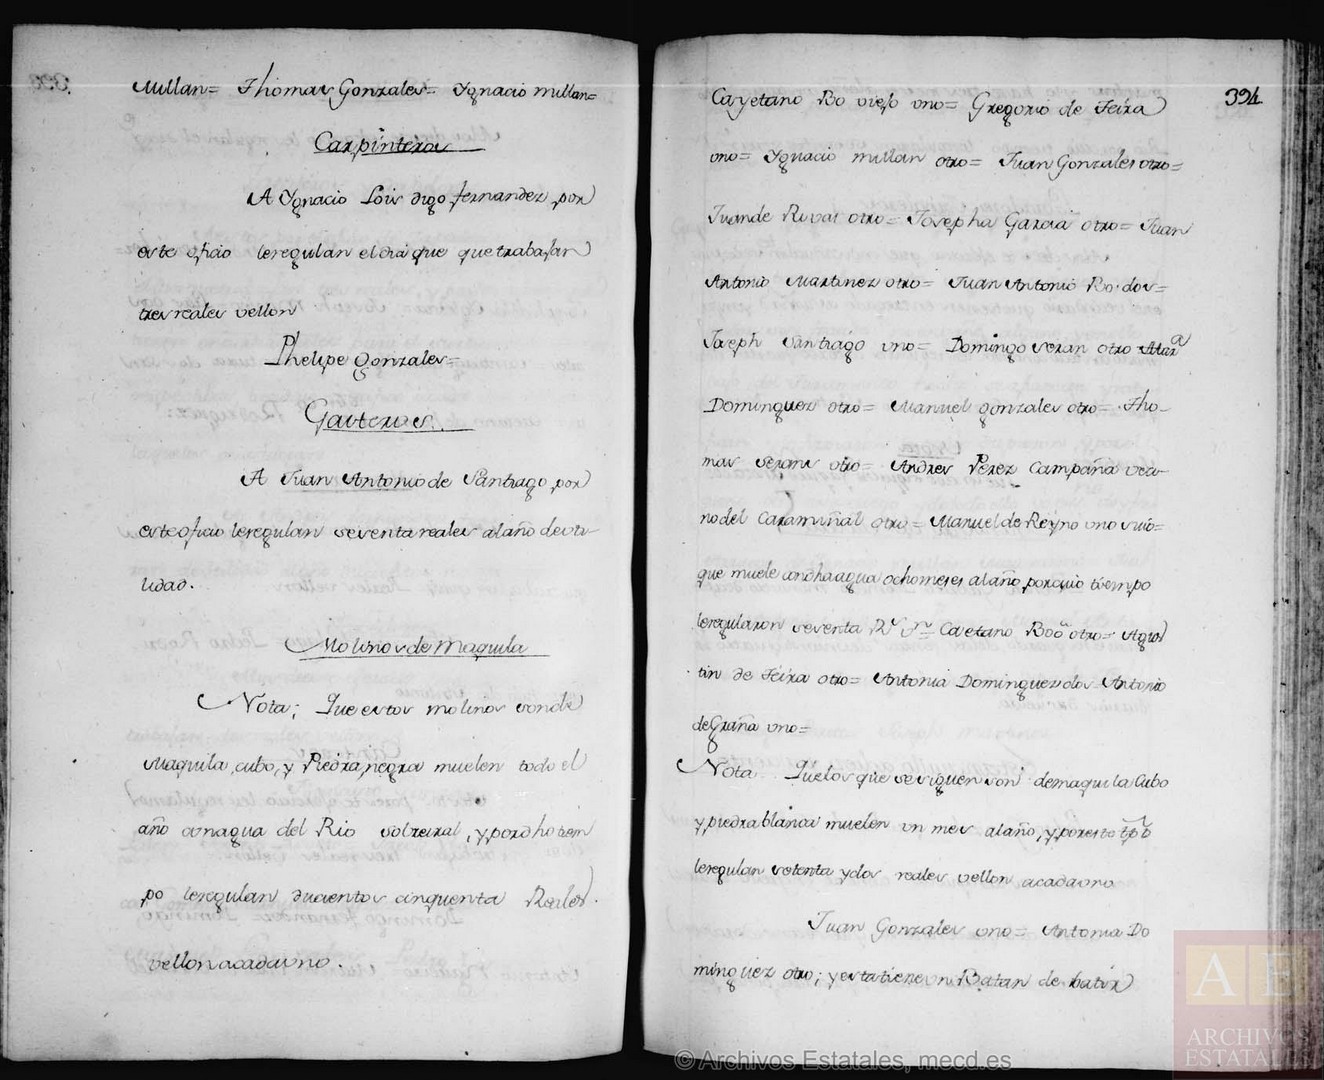 Millan= Thomas Gonzales= Ygnacio millan=
Carpinteros
A Ygnacio Lois digo fernandez, por
este oficio leregulan eldia que que trabajan
tres reales vellon
Phelipe Gonzales=
Gayteros.
A Juan Antonio de Santiago, por
este oficio leregulan sesenta reales alaño deuti-
lidad.
Molinos de Maquila
Nota; Que estos molinos sonde
Maquila, cubo, y Piedra, negra muelen todo el
año con agua del Rio, y por dho tiem
po leregulan ducientos cinquenta Reales
vellon acadauno.
394
Cayetano Bo viejo uno= Gregorio de Teira
uno= Ygnacio millan otro= Juan Gonzales otro=
Juande Rivas otro= Josepha Garcia otro= Juan
Antonio Martinez otro= Juan Antonio Bo. dos=
Joseph Santiago uno= Domingo Seran otro
Dominguez otro= Manuel gonzales otro= Tho-
mas Serans otro= Andres Perez Campaña veci-
no del Caramiñal otro= Manuel de Reyno uno suio=
que muele con dha agua ocho meses alaño, porcuio tiempo
leregularon sesenta Rs Vn= Caetano Boo otro= Agus
tin de Teira otro= Antonia Dominguez dos= Antonio
de Graña uno=
Nota.. Quelos que se siguen son demaquila Cubo
y piedra blanca muelen un mes alaño, y por esto tpo
leregulan setenta y dos reales vellon acadauno
Juan Gonzales uno= Antonia Do
minguez otro; y esta tiene un Batan de batir
AE
ARCHIVOS
ESTATALES
© Archivos Estatales, mecd.es